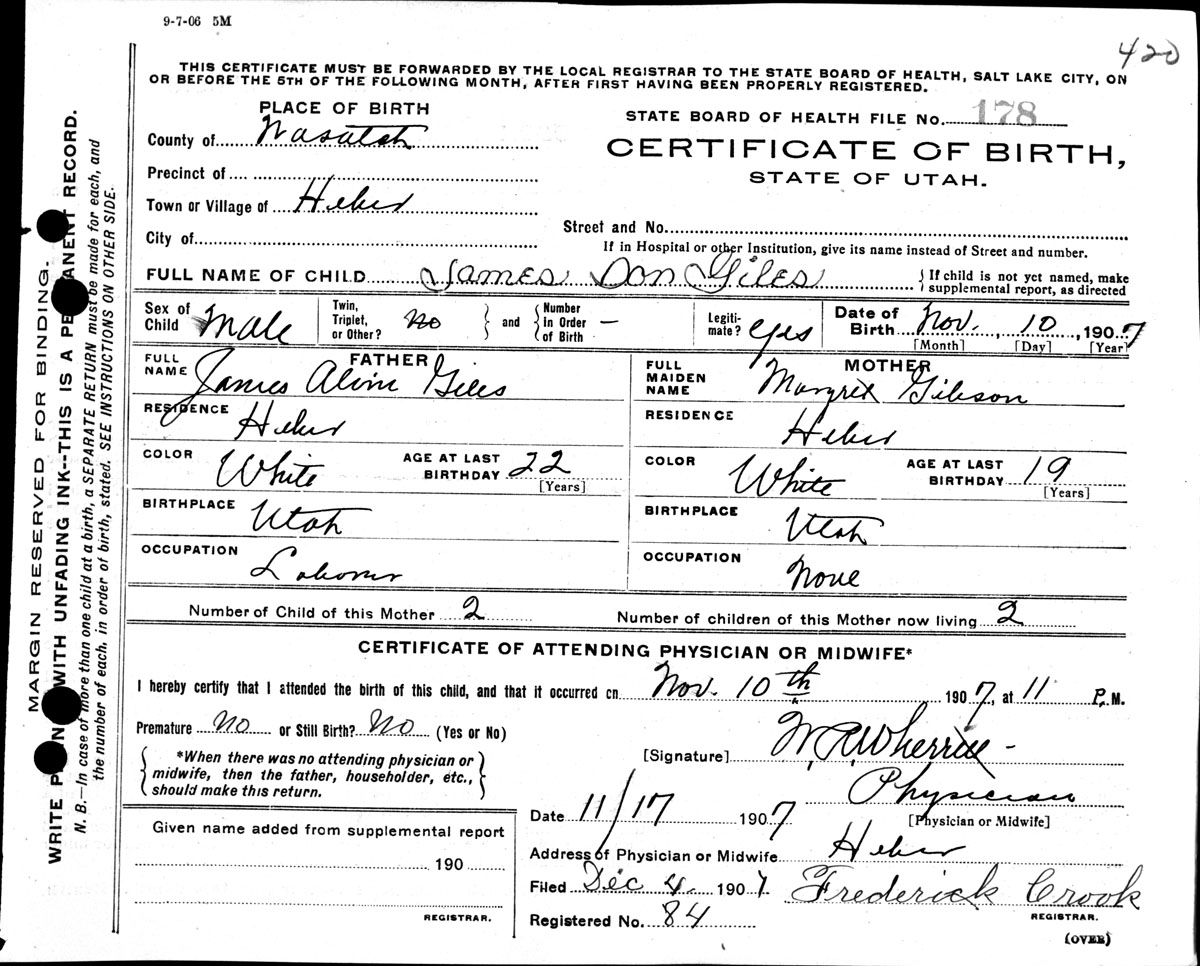 9-7-06 5M
420
THIS CERTIFICATE MUST BE FORWARDED BY THE LOCAL REGISTRAR TO THE STATE BOARD OF HEALTH, SALT LAKE CITY, ON
OR BEFORE THE 5TH OF THE FOLLOWING MONTH, AFTER FIRST HAVING BEEN PROPERLY REGISTERED.
PLACE OF BIRTH
STATE BOARD OF HEALTH FILE No. 178
County of Wasatch
CERTIFICATE OF BIRTH,
STATE OF UTAH.
Precinct of
Town or Village of Heber
Street and No.
City of
If in Hospital or other Institution, give its name instead of Street and number.
FULL NAME OF CHILD James Don Giles { If child is not yet named, make
supplemental report, as directed
Sex of Child Male
Twin, Triplet, or Other? No } and { Number in Order of Birth —
Legitimate? Yes
Date of Birth Nov. 10, 1907
[Month] [Day] [Year]
FATHER
FULL NAME James Giles
RESIDENCE Heber
COLOR White AGE AT LAST BIRTHDAY 22
[Years]
BIRTHPLACE Utah
OCCUPATION Laborer
MOTHER
FULL MAIDEN NAME Margret Gibson
RESIDENCE Heber
COLOR White AGE AT LAST BIRTHDAY 19
[Years]
BIRTHPLACE Utah
OCCUPATION None
Number of Child of this Mother 2 Number of children of this Mother now living 2
CERTIFICATE OF ATTENDING PHYSICIAN OR MIDWIFE*
I hereby certify that I attended the birth of this child, and that it occurred on Nov. 10th 1907, at 11 P.M.
Premature No or Still Birth? No (Yes or No)
*When there was no attending physician or
midwife, then the father, householder, etc.,
should make this return.
[Signature] Wherritt
Physician
[Physician or Midwife]
Date 11/17 1907
Address of Physician or Midwife Heber
Filed Dec 4 1907 Frederick Crook
REGISTRAR.
Registered No. 84
(OVER)
Given name added from supplemental report
190
REGISTRAR.
MARGIN RESERVED FOR BINDING.
WRITE WITH UNFADING INK--THIS IS A PERMANENT RECORD.
N. B.—In case of more than one child at a birth, a SEPARATE RETURN must be made for each, and
the number of each, in order of birth, stated. SEE INSTRUCTIONS ON OTHER SIDE.